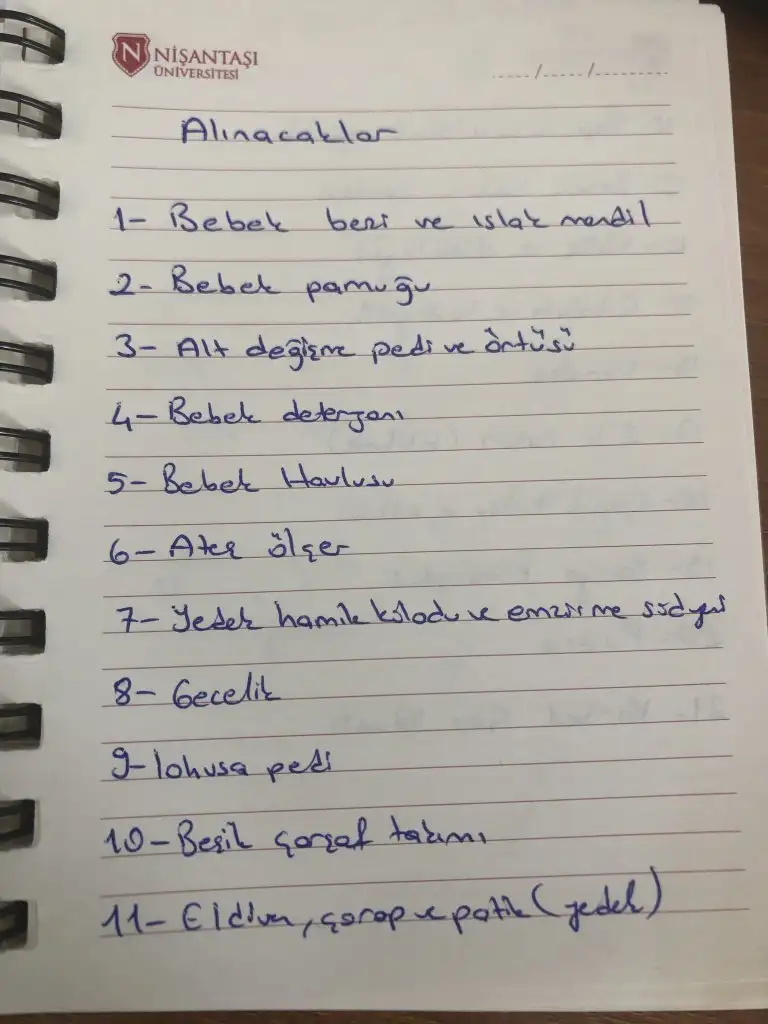 NİŞANTAŞI
ÜNİVERSİTESİ
...../...../..........
Alınacaklar
1- Bebek bezi ve ıslak mendil
2- Bebek pamuğu
3- Alt değişme pedi ve örtüsü
4- Bebek deterjanı
5- Bebek Havlusu
6- Ateş ölçer
7- Yedek hamile külodu ve emzirme südyeni
8- Gecelik
9- lohusa pedi
10- Beşik çarşaf takımı
11- Eldiven, çorap ve patik (yedek)